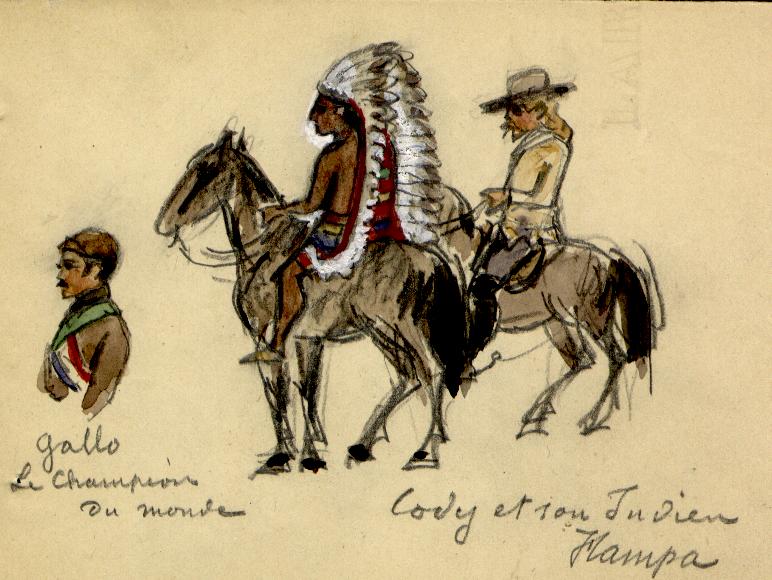 gallo
Le Champion
Du monde
Cody et son Indien
Hampa